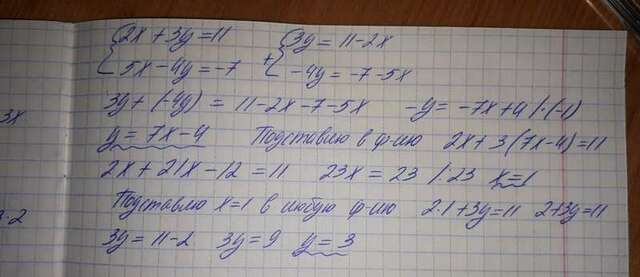 2x + 3y = 11 3y = 11 - 2x
5x - 4y = -7 + -4y = -7 - 5x
3x
3y + (-4y) = 11 - 2x - 7 - 5x -y = -7x + 4 | · (-1)
y = 7x - 4 Подставлю в ф-лю 2x + 3(7x - 4) = 11
2x + 21x - 12 = 11 23x = 23 | : 23 x = 1
Подставлю x = 1 в любую ф-лю 2·1 + 3y = 11 2 + 3y = 11
3y = 11 - 2 3y = 9 y = 3